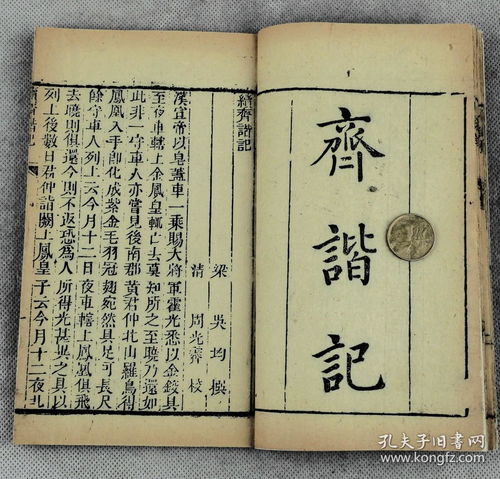 齊諧記
續齊諧記
梁 吳均 撰
清 周光霽 校
漢宣帝以皂蓋車一乘賜大將軍霍光悉以金鉸具
至夜車轄上金鳳皇輒亡去莫知所之至曉乃還如
此非一守車人亦嘗見後南郡黃君仲北山羅鳥得
鳳凰入手即化成紫金毛羽冠翅宛然具足可長尺
餘守車人列上云今月十二日夜車轄上鳳凰俱飛
去曉則俱還今則不返恐為人所得光甚異之具以
列上後數日君仲詣闕上鳳皇子云今月十二夜北
孔夫子旧书网
www.kongfz.com